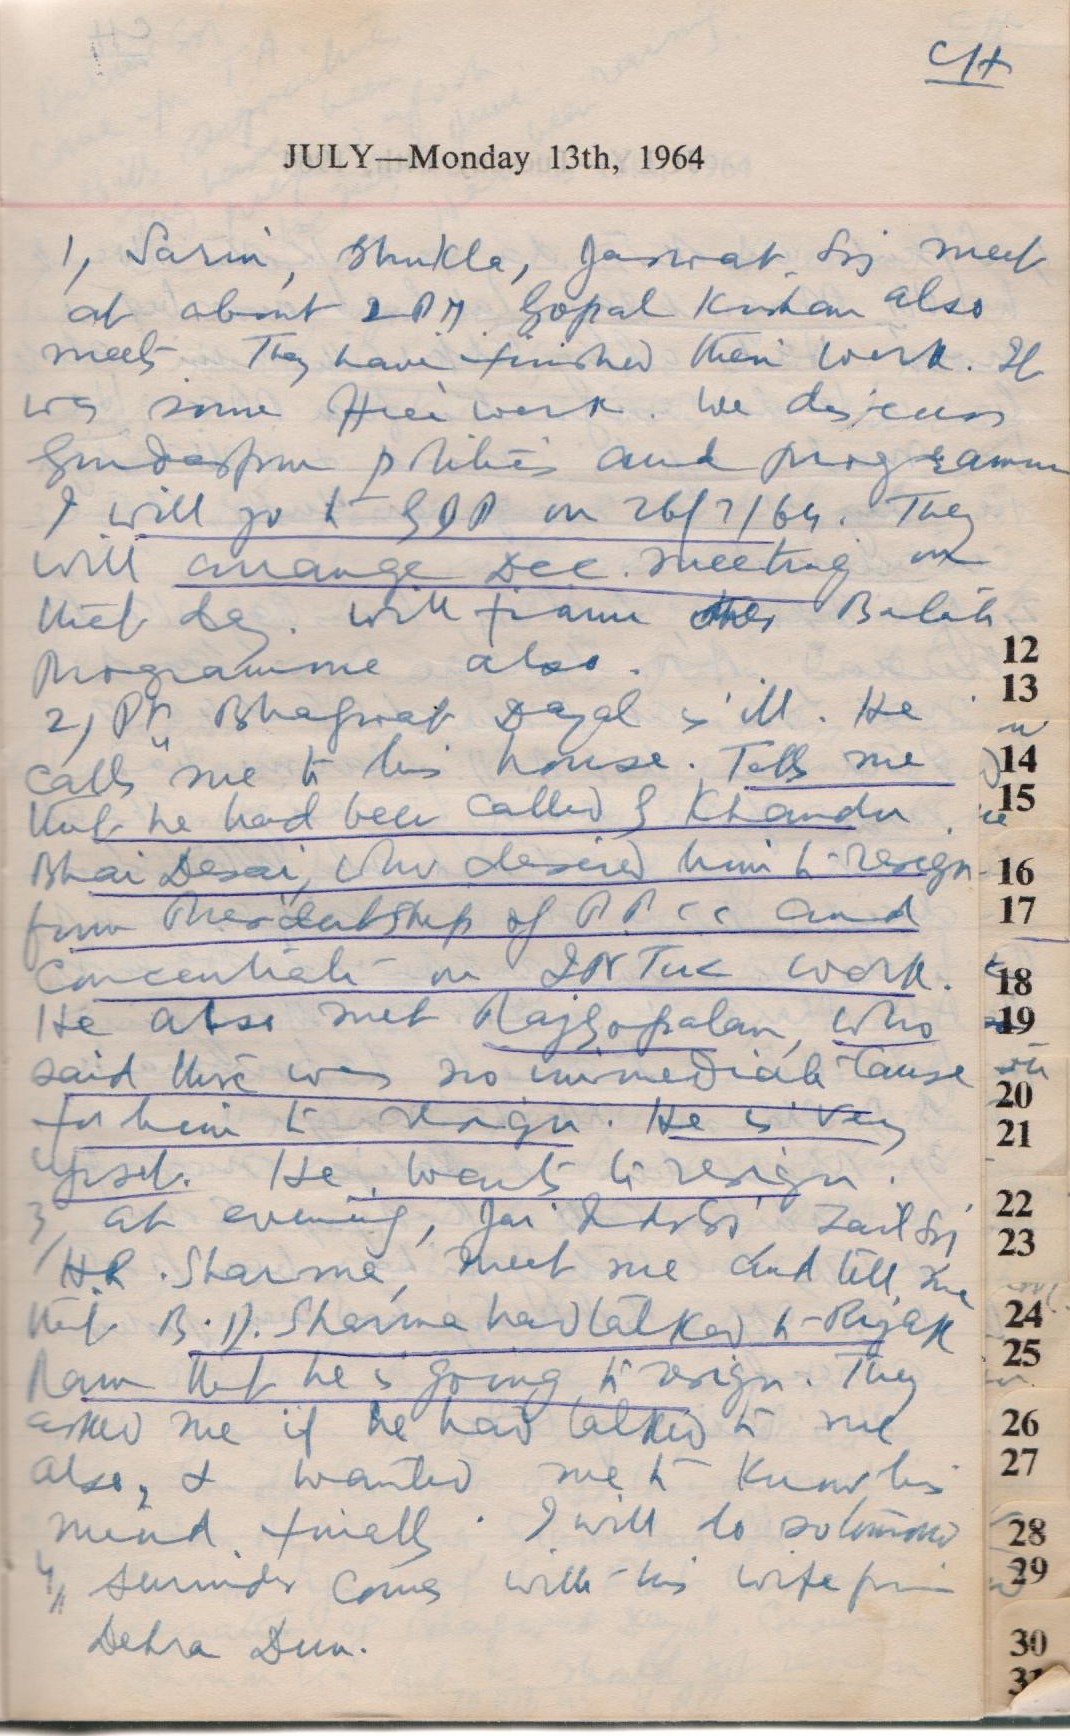 CH
JULY—Monday 13th, 1964
1, Sarin, Shukla, Jaswat Sij meet
at about 2 PM Gopal Krishan also
meets They have finished their work. It
was some Hiei work. We discuss
Gurdaspur politics and programm
I will go to GDP on 26/7/64. They
will arrange Dec. meeting on
that day. Will frame Batala
Programme also.
2, Pt. Bhagwat Dayal is ill. He
calls me to his house. Tells me
that he had been called by Khandu
Bhai Desai, who desired him to resign
from Presidentship of PPCC and
Concentrate on INTUC work.
He also met Rajgopalan, who
said there was no immediate cause
for him to resign. He is very
upset. He wants to resign.
3, at evening, Jai Inder Si Zail Sij
HR. Sharma, meet me and tell me
that B.D. Sharma had talked to Rizak
Ram that he is going to resign. They
asked me if he had talked to me
also, & wanted me to know his
mind finally. I will do so tomorrow
4, Surinder comes with his wife from
Dehra Dun.
12
13
14
15
16
17
18
19
20
21
22
23
24
25
26
27
28
29
30
31